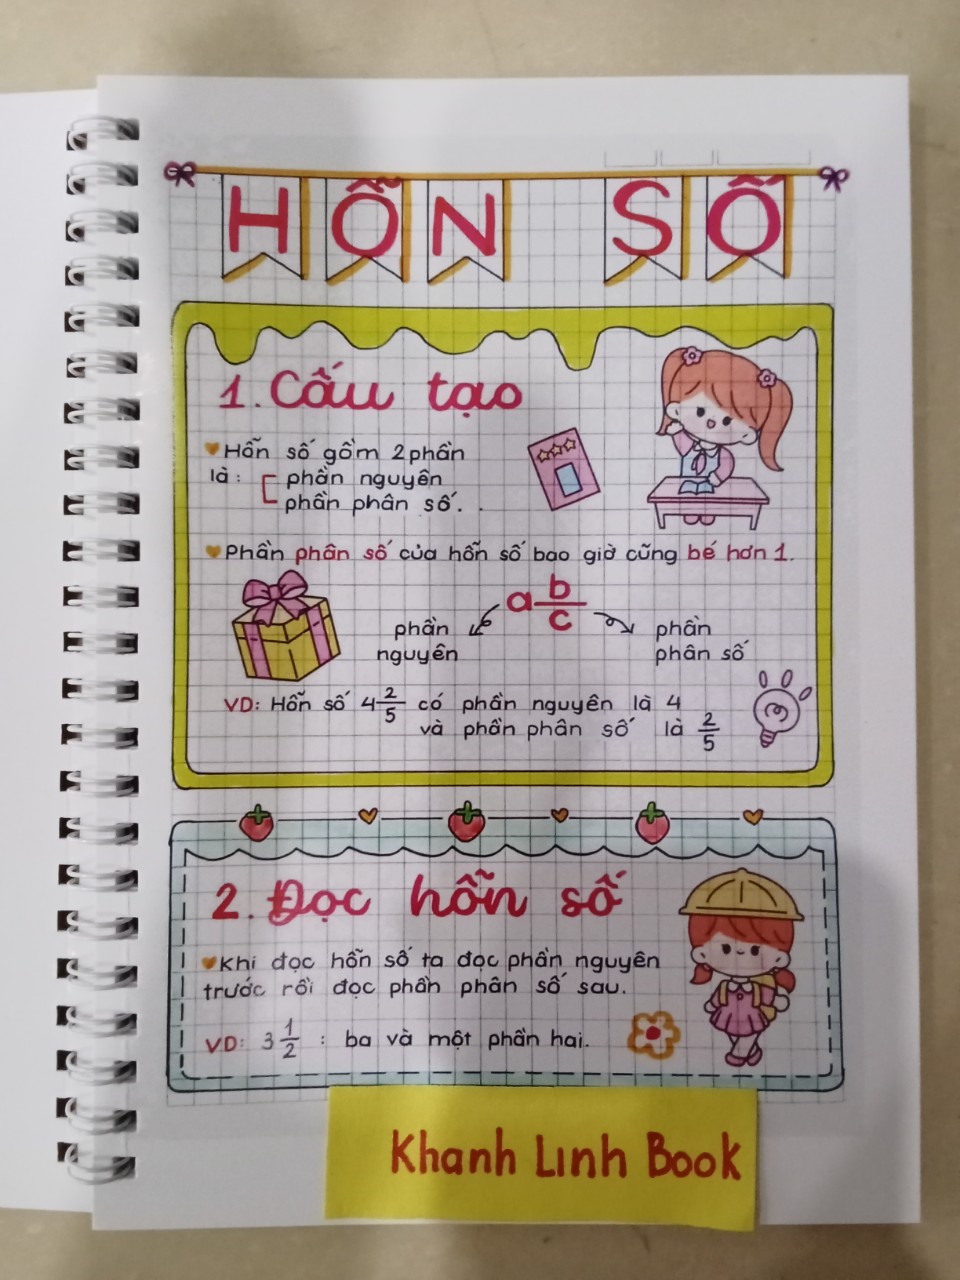 HỖN SỐ
1. Cấu tạo
Hỗn số gồm 2 phần
là: phần nguyên
phần phân số.
Phần phân số của hỗn số bao giờ cũng bé hơn 1.
a b/c
phần nguyên
phần phân số
VD: Hỗn số 4 2/5 có phần nguyên là 4
và phần phân số là 2/5
2. Đọc hỗn số
Khi đọc hỗn số ta đọc phần nguyên
trước rồi đọc phần phân số sau.
VD: 3 1/2 : ba và một phần hai.
Khanh Linh Book